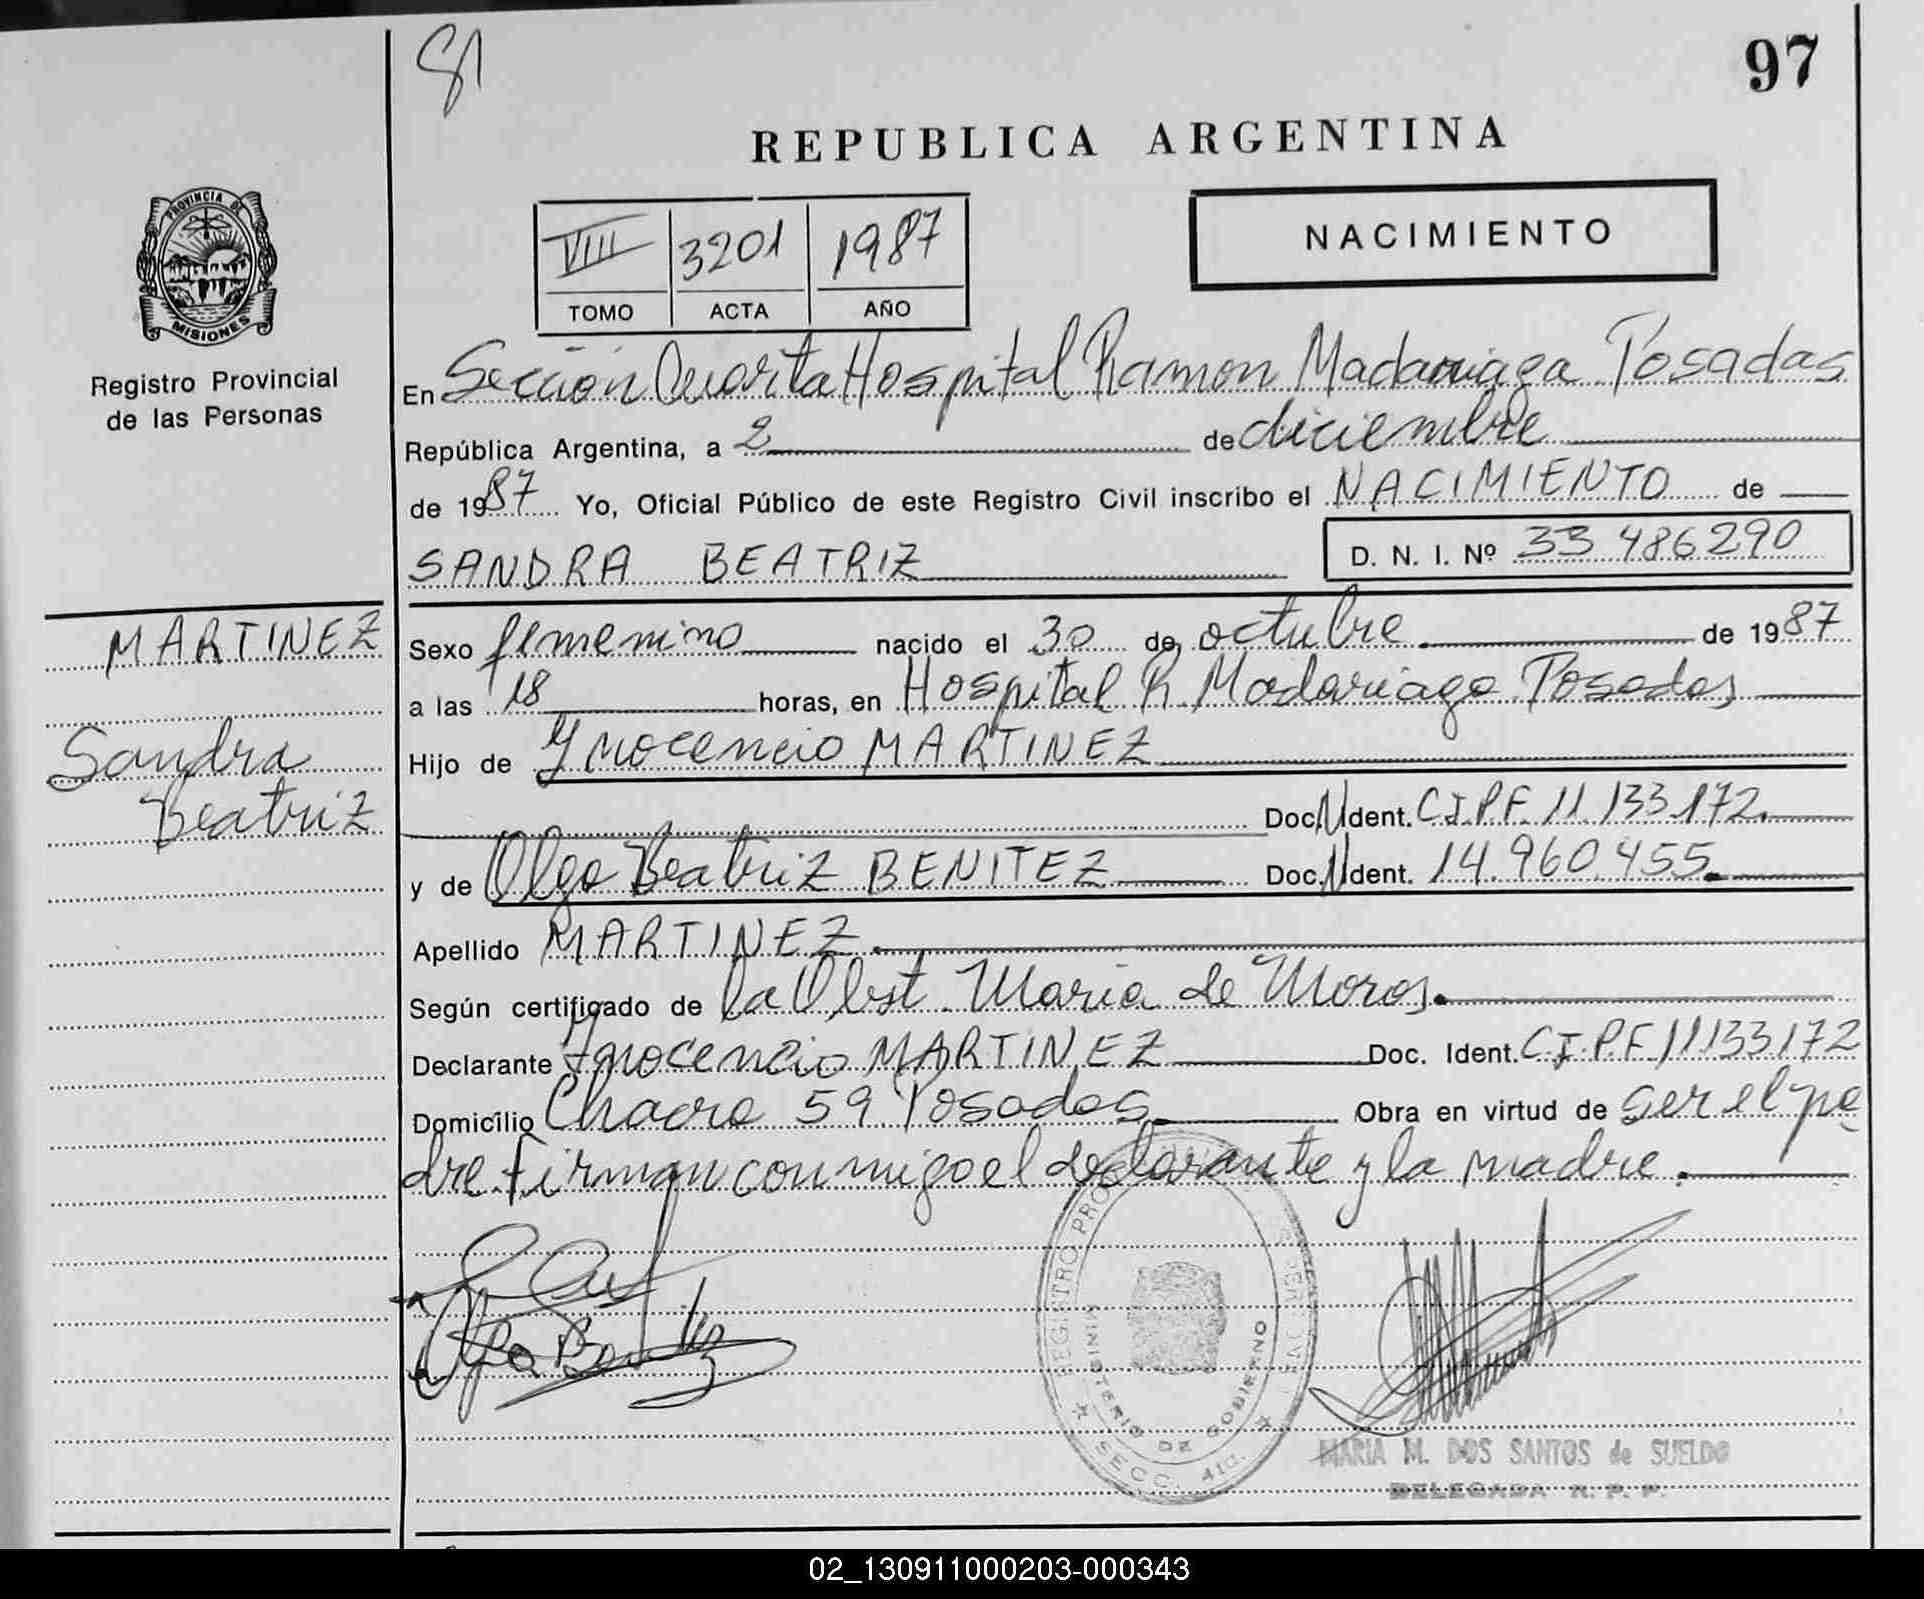 81
97
REPUBLICA ARGENTINA
PROVINCIA DE
MISIONES
Registro Provincial
de las Personas
VIII 3201 1987
TOMO ACTA AÑO
NACIMIENTO
En Sección Cuarta Hospital Ramon Madariaga Posadas
República Argentina, a 2 de diciembre
de 1987 Yo, Oficial Público de este Registro Civil inscribo el NACIMIENTO de
SANDRA BEATRIZ D. N. I. Nº 33 486290
MARTINEZ
Sandra
Beatriz
Sexo femenino nacido el 30 de octubre de 1987
a las 18 horas, en Hospital R. Madariaga Posadas
Hijo de Ynocencio MARTINEZ
Doc. N Ident. C.I.P.F. 11.133.172.
y de Olga Beatriz BENITEZ Doc. N Ident. 14.960.455.
Apellido MARTINEZ
Según certificado de la Obst. Maria de Moros.
Declarante Ynocencio MARTINEZ Doc. Ident. C.I.P.F 11133172
Domicilio Chacra 59 Posadas Obra en virtud de ser el pa
dre firman conmigo el declarante y la madre.
Olga Benitez
REGISTRO PRO
MINISTERIO DE GOBIERNO
SECC. 4ta.
MARIA M. DOS SANTOS de SUELDO
DELEGADA R. P. P.
02_130911000203-000343